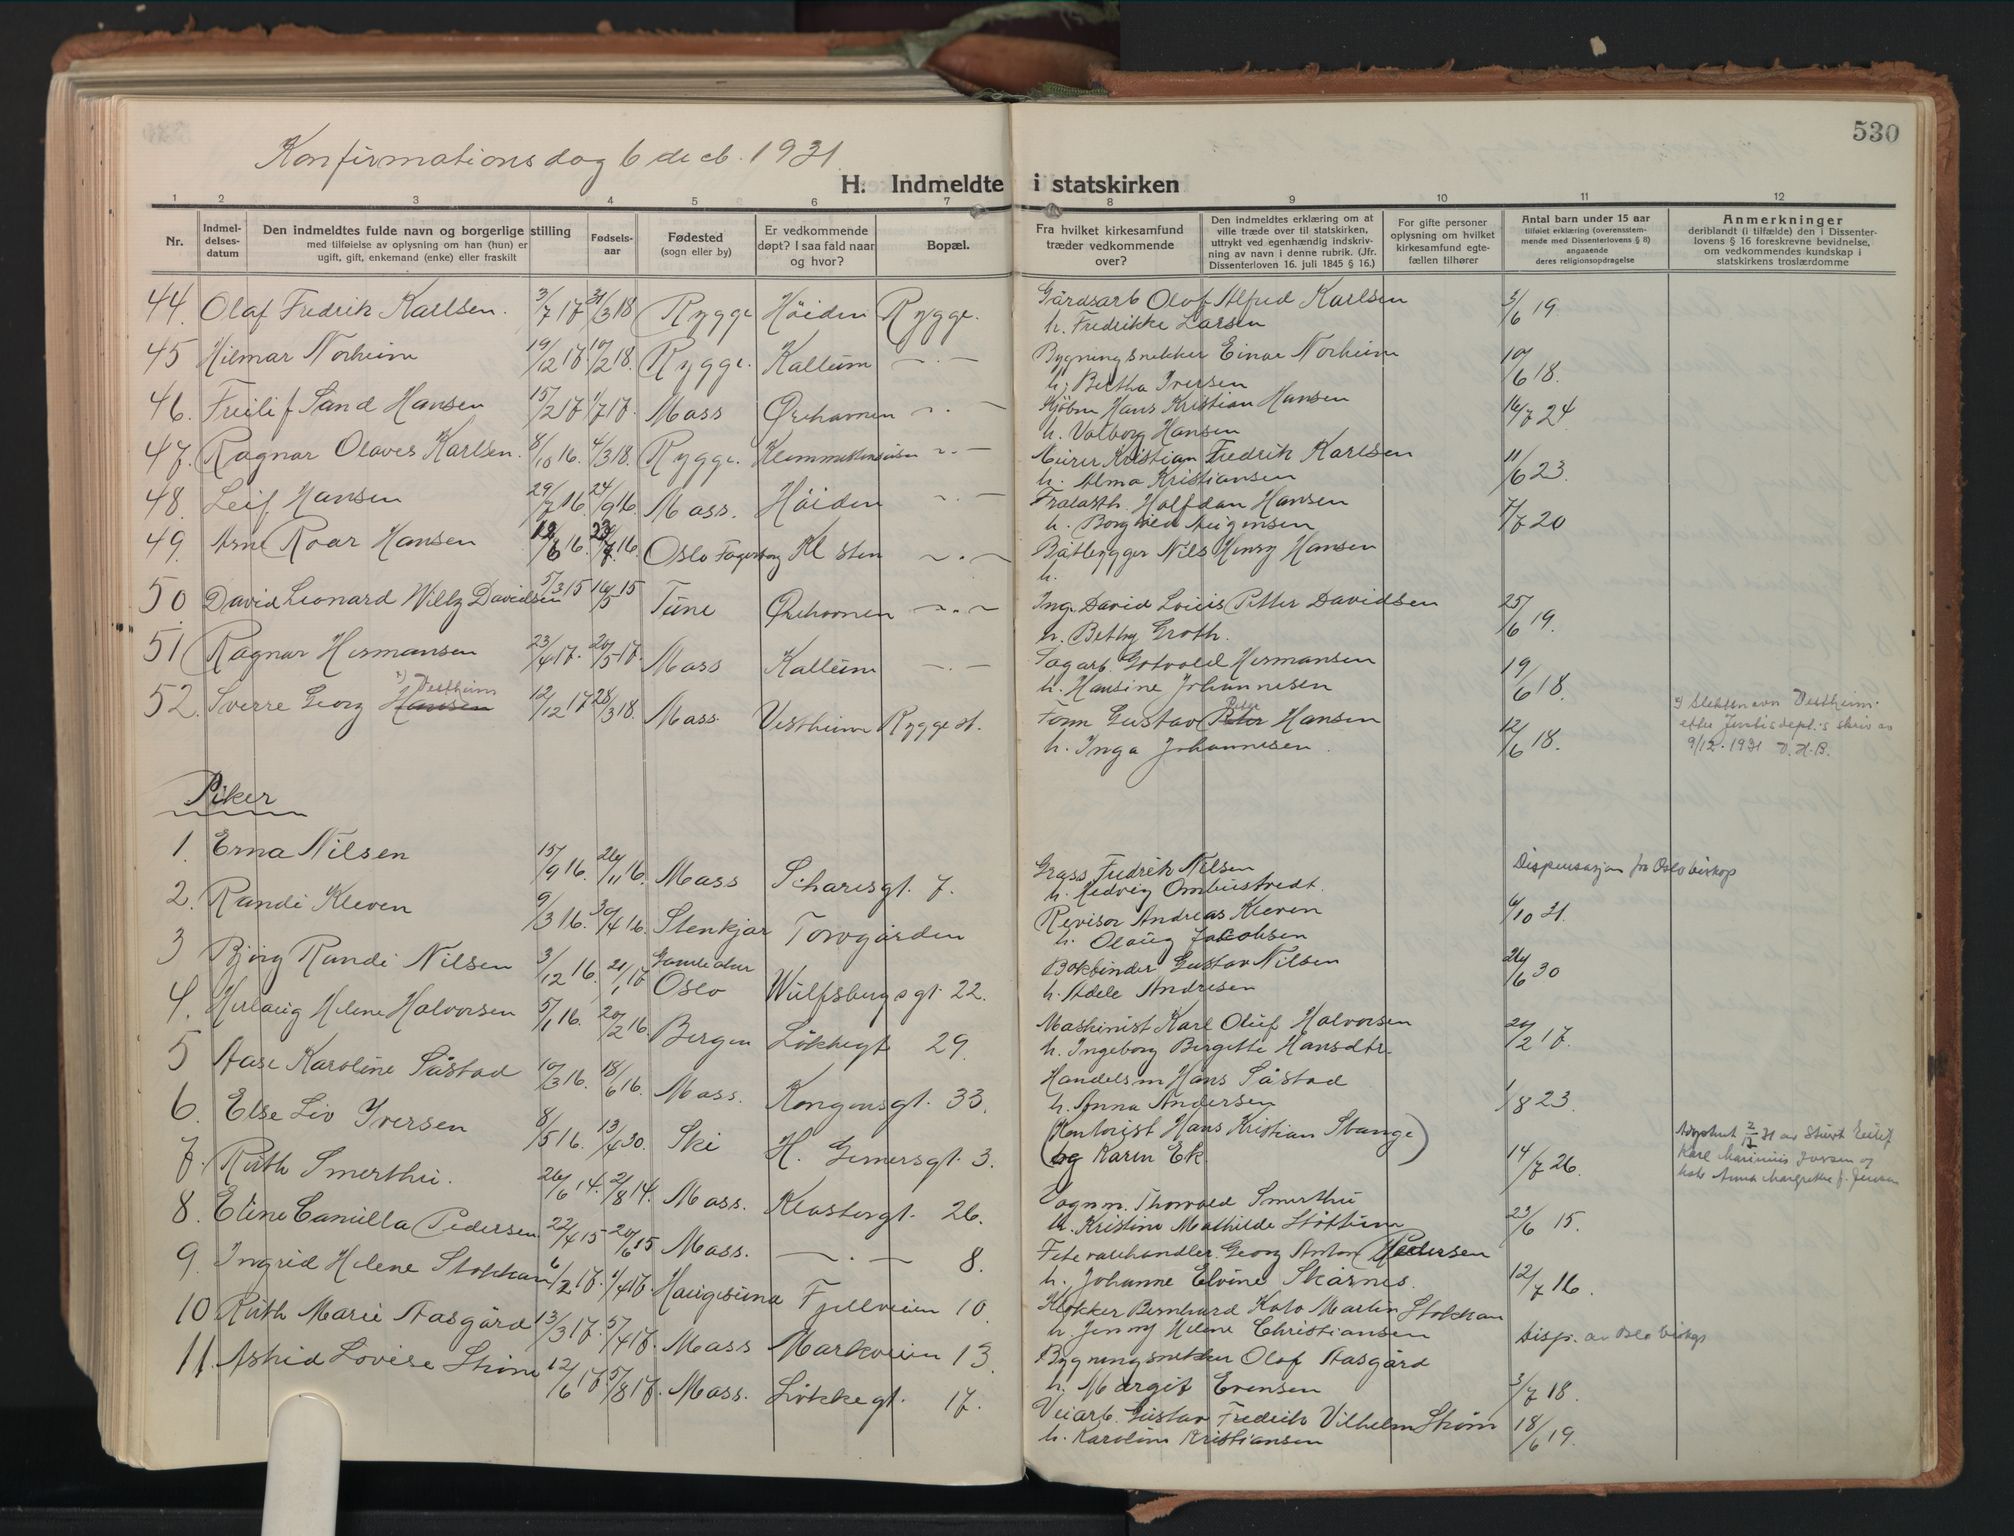 530
Konfirmationsdag 6 decb. 1931
H. Indmeldte i statskirken
1 2 3 4 5 6 7 8 9 10 11 12
Nr.
Indmel-
delses-
datum
Den indmeldtes fulde navn og borgerlige stilling
med tilføielse av oplysning om han (hun) er
ugift, gift, enkemand (enke) eller fraskilt
Fødsels-
aar
Fødested
(sogn eller by)
Er vedkommende
døpt? I saa fald naar
og hvor?
Bopæl.
Fra hvilket kirkesamfund
træder vedkommende
over?
Den indmeldtes erklæring om at
ville træde over til statskirken,
uttrykt ved egenhændig indskriv-
ning av navn i denne rubrik. (Jfr.
Dissenterloven 16. juli 1845 § 16.)
For gifte personer
oplysning om hvilket
kirkesamfund egte-
fællen tilhører
Antal barn under 15 aar
tilføiet erklæring (overensstem-
mende med Dissenterlovens § 8)
angaaende
deres religionsopdragelse
Anmerkninger
deriblandt (i tilfælde) den i Dissenter-
lovens § 16 foreskrevne bevidnelse,
om vedkommendes kundskap i
statskirkens troslærdomme
44. Olaf Fredrik Karlsen. 3/7 17 31/3 18 Rygge Höiden Rygge. Gårdsarb Olof Alfred Karlsen 3/6 19.
h. Fredrikke Larsen
45 Hilmar Norheim 19/12 17 10/2 18. Rygge. Kallum — . — Bygningsnekker Einar Norheim 10/6 18.
h. Bertha Iversen
46. Freilif Sand Hansen 15/2 17 1/7 17. Moss Ørehavnen — . — Kjöbm Hans Kristian Hansen 16/7 24
h. Valborg Hansen
47. Ragnar Olaves Karlsen. 8/10 16. 4/3 18. Rygge. — . — Murer Kristian Fredrik Karlsen 11/6 23.
h. Alma Kristiansen
48. Leif Hansen 29/7 16 24/9 16. Moss. Höiden — . — Halfdan Hansen 7/7 20
h. Borghild
49. Arne Roar Hansen 12/6 16. 23/7 16. Oslo Fagerborg Kl sten — . — Båtbygger Nils Henry Hansen
h.
50 David Leonard Willy Davidsen 5/3 15 16/5 15 Tune Ørehavnen — . — Ing. David Louis Petter Davidsen 25/6 19.
h. Betty Groth.
51 Ragnar Hermansen 23/4 17. 20/5 17. Moss Kallum — . — Sagarb. Gotvold Hermansen 19/6 18.
h. Hansine Johannesen
52. Sverre Georg Hansen x) Vestheim 12/12 17 28/3 18. Moss. Vestheim Rygge st. Form Gustav Peter Hansen 12/6 18.
h. Inga Johannesen.
x) Slektsnavn Vestheim
efter Justisdept.s skriv av
9/12. 1931 V. H. B.
Piker
1. Erna Nilsen 15/9 16. 26/11 16. Moss Scharisgt. 7. Gross. Fredrik Nilsen Dispensasjon fra Oslo biskop
h. Hedvig
2. Randi Kleven 9/3 16. 30/4 16. Stenkjær Torvgården Revisor Andreas Kleven 4/10 31.
h. Olaug Jacobsen
3 Bjørg Randi Nilsen 3/12 16. 21/1 17 Gamle Aker Oslo Wulfsbergsgt. 22. Bokbinder Gustav Nilsen 26/6 30
h. Adele Andresen
4. Herlaug Helene Halvorsen 5/1 16. 20/2 16. Bergen Lökkegt 29. Maskinist Karl Oluf Halvorsen 20/2 17.
h. Ingeborg Bergette Hansdtr.
5 Aase Karoline Såstad 10/3 16. 18/6 16. Moss. Kongensgt. 33. Handelsm Hans Såstad 1/8 23.
h. Anna Andersen
6. Else Liv Iversen 8/5 16. 13/4 30. Ski H. Gernersgt. 3. (Kontorist Hans Kristian Stange 14/7 26.
og Karen Ek.)
Adoptert 2/12 31 av
Karl Marinius Iversen og
Anna Margrethe f. Jensen
7. Ruth Smerthu. 26/6 14. 2/8 14. Moss. Klostergt. 26. Vognm. Thorvald Smerthu 23/6 15.
h. Kristine Mathilde Støttum
8. Eline Camilla Pedersen 22/4 15 20/6 15 Moss. — . — 8. Fetevarehandler. Georg Anton Pedersen 12/7 16.
h. Johanne Elvine Skårnes.
9. Ingrid Helene Stokkan 6/2 17. 1/4 17. Haugesund Fjellveien 10. Klokker Bernhard Kato Martin Stokkan Disp. av Oslo biskop
h. Jenny Helene Christiansen
10 Ruth Marie Aasgård 13/3 17. 5/4 17. Moss Markveien 13. Bygningsnekker Olaf Aasgård 3/7 18.
h. Margit Evensen
11. Astrid Lovise Strøm 12/6 17 5/8 17. Moss. Lökkegt. 17. Veiarb. Gustav Fredrik Vilhelm Strøm 18/6 19.
h. Karoline Kristiansen